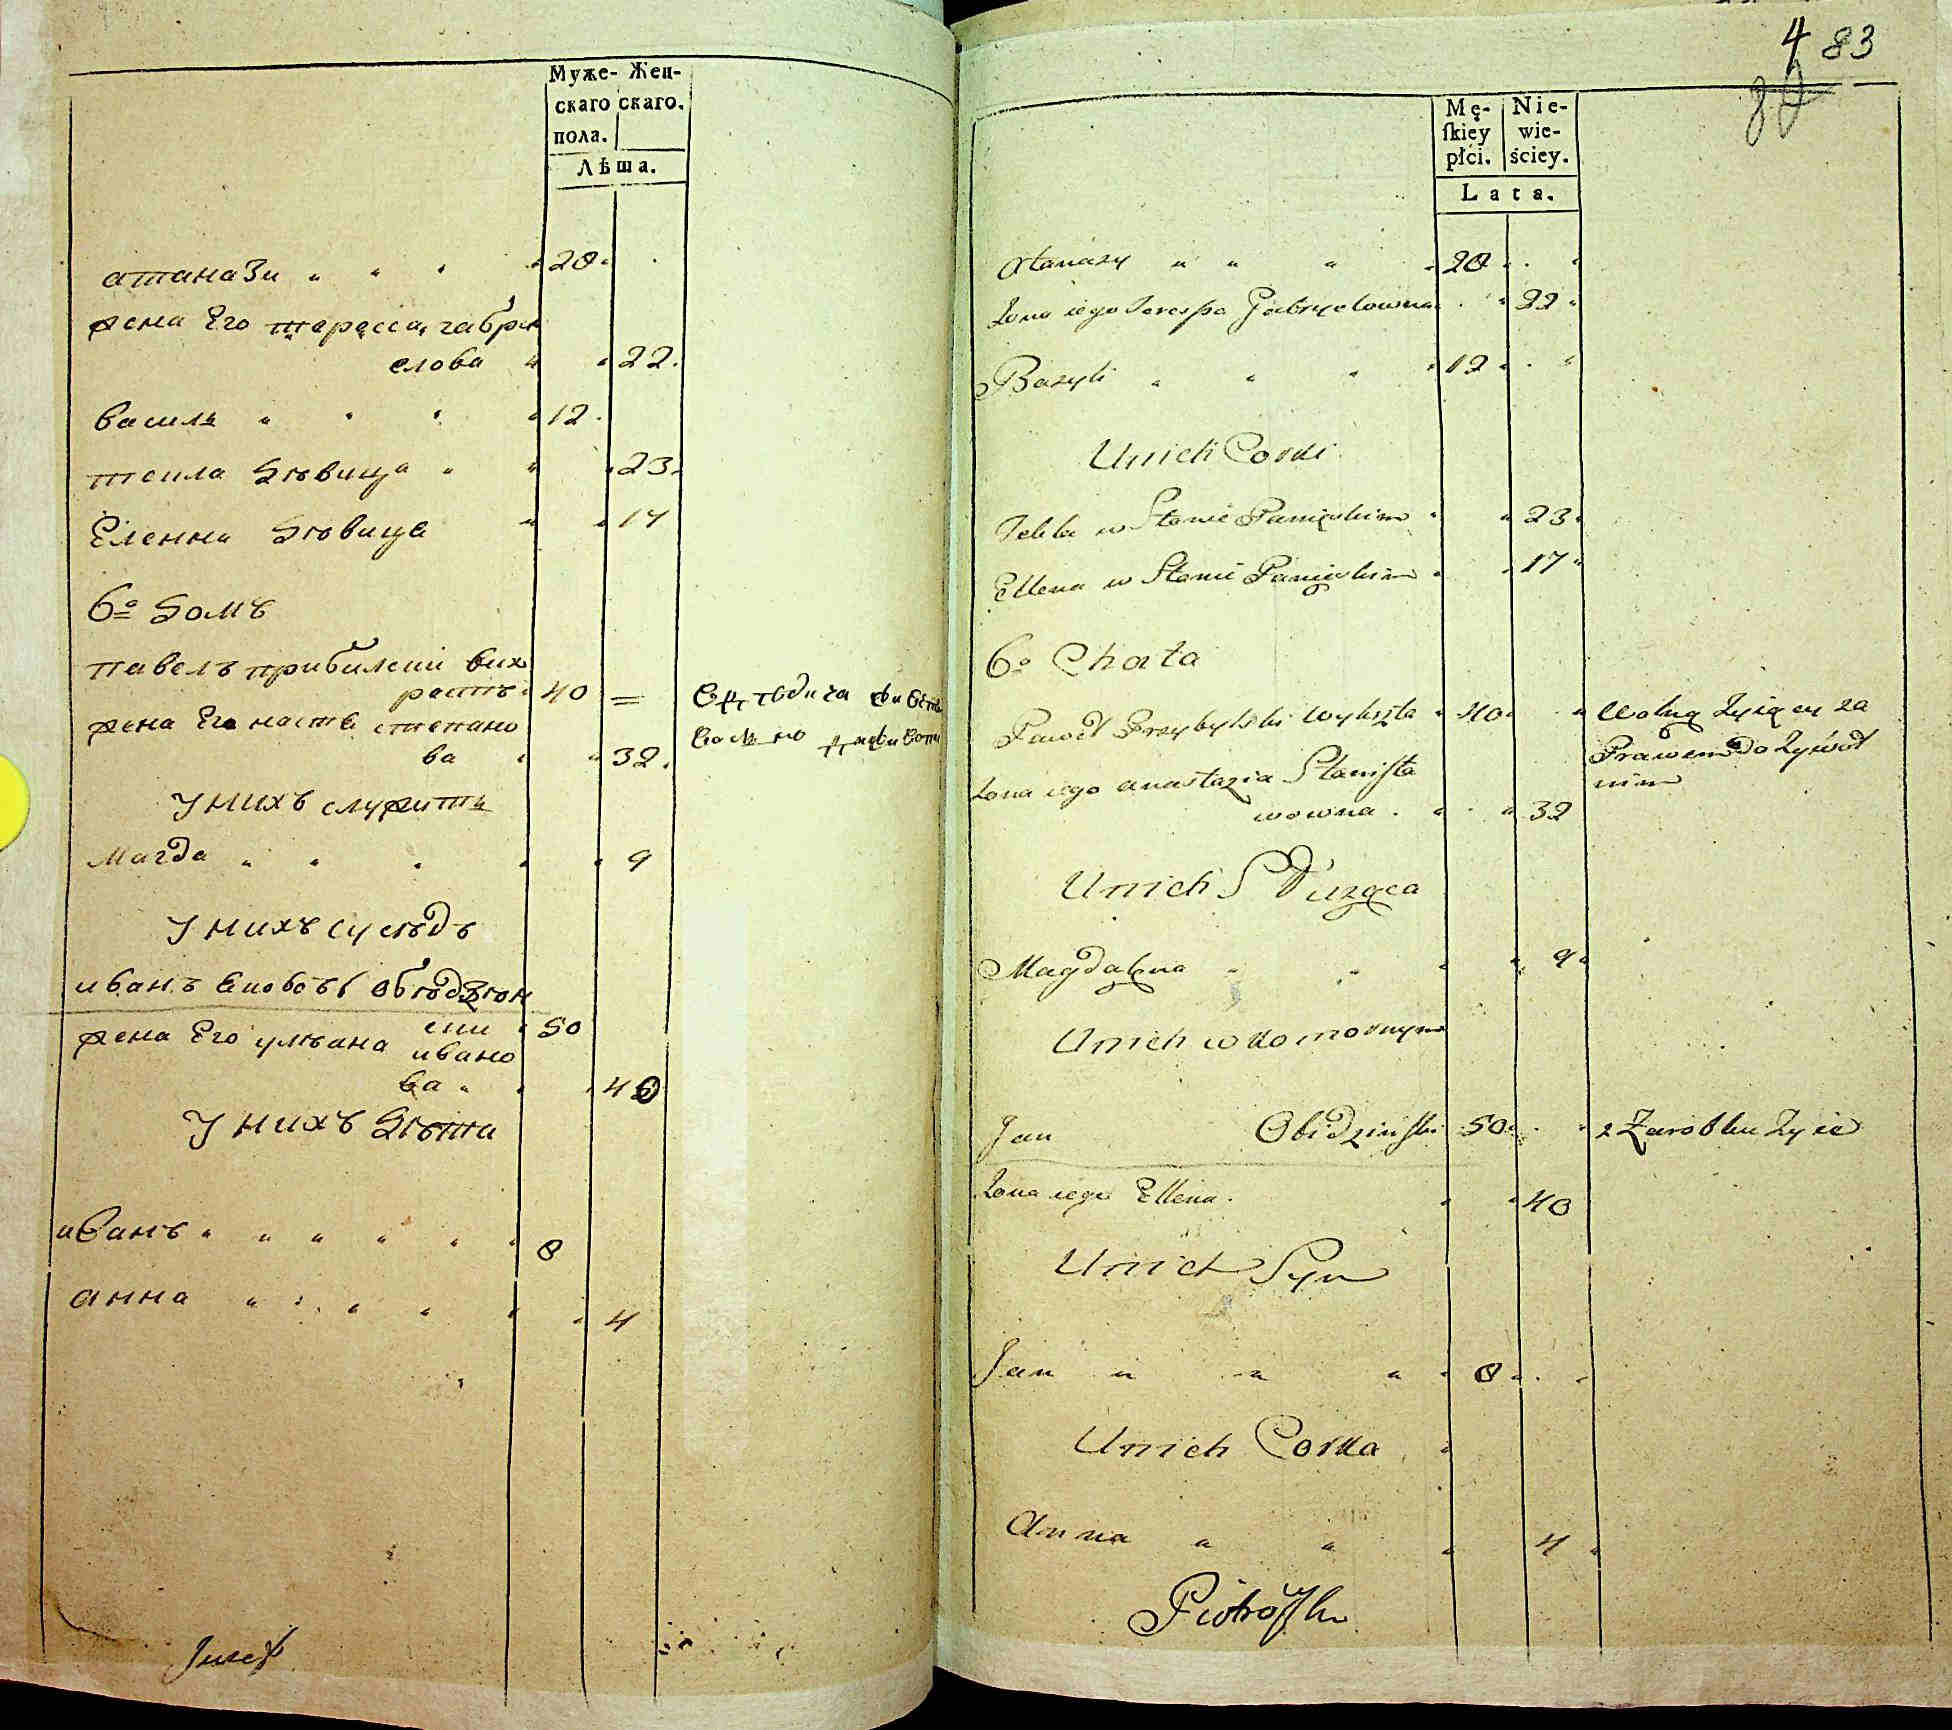 Муже- Жен-
скаго скаго.
пола.
Лѣта.
атанаzи 20
жена Его тересса габри
елова 22
василь 12
текла девица 23
Еленна девица 17
6º домъ
павелъ прибилски вих
ростъ 40 =
жена Его насте степано
ва 32
У нихъ служитъ
Магда 9
У нихъ суседъ
иванъ обѣдзин
ски 50
жена Его улѣана ивано
ва 40
У нихъ дѣти
иванъ 8
анна 4
Jozef
4 83
Mę- Nie-
skiey wie-
płci. ściey.
Lata.
Atanazy 20
Zona iego Teressa Gabryelowna 22
Bazyli 12
Unich Corki
Tekla w Stanie Panięskim 23
Ellena w Stanie Panięskim 17
6º Chata
Paweł Przybylski Wykszta 40 Wolny Zyiący za
Prawem Do Zywot
nim
Zona iego anastazia Stanisła
wowna 32
Unich Służąca
Magdalena 9
Unich w Komornym
Jan Obidzinski 50 z Zarobku Zyie
Zona iego Ellena 40
Unich Syn
Jan 8
Unich Corka
Anna 4